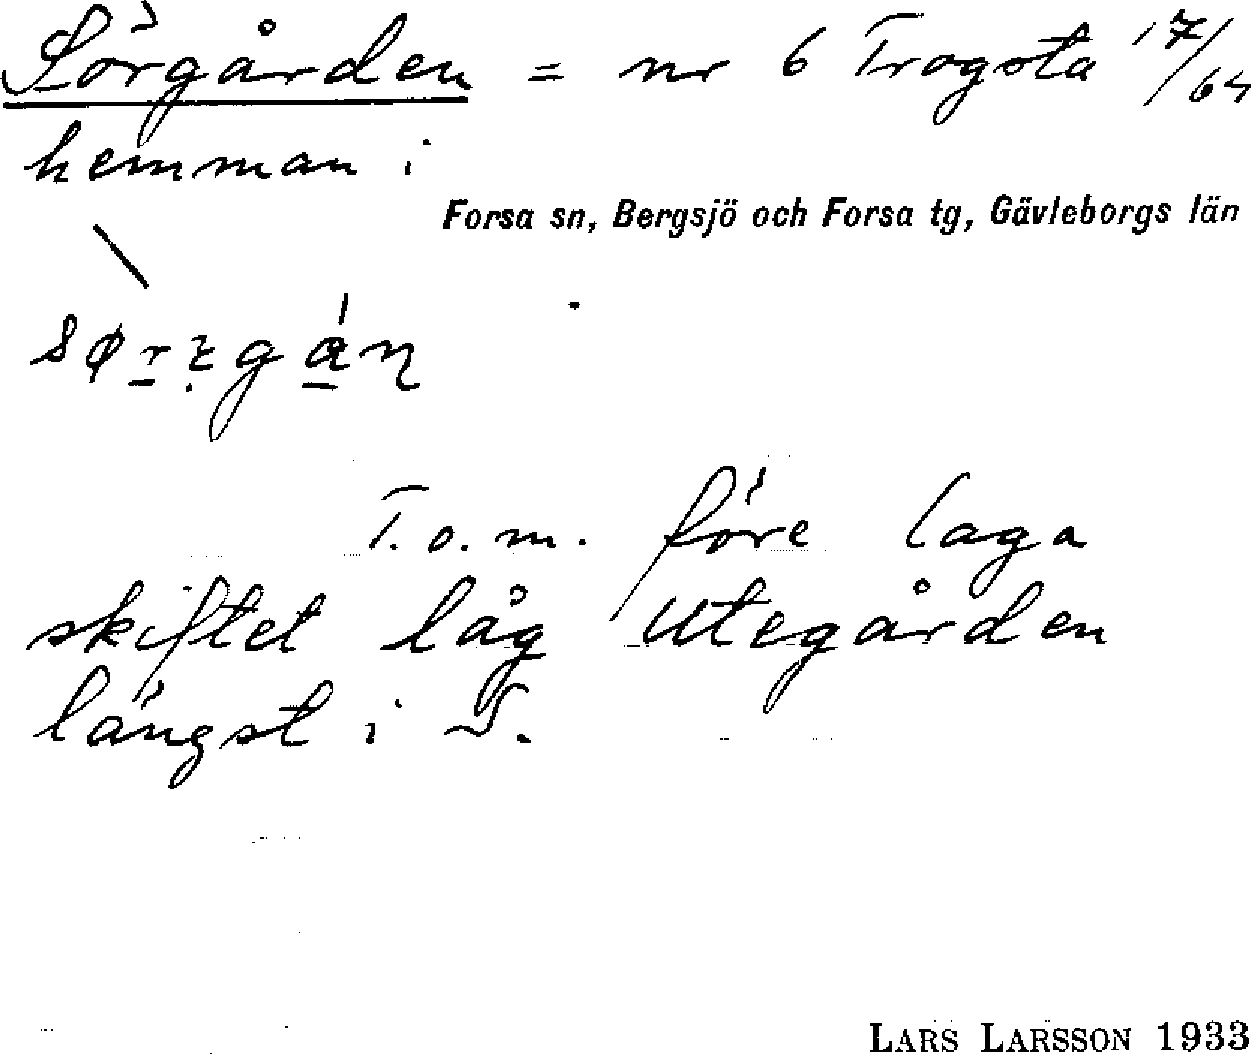 Sörgården = nr 6 Trogsta 17/64
hemman i
Forsa sn, Bergsjö och Forsa tg, Gävleborgs län
T.o.m. före laga
skiftet låg Utegården
längst i S.
LARS LARSSON 1933